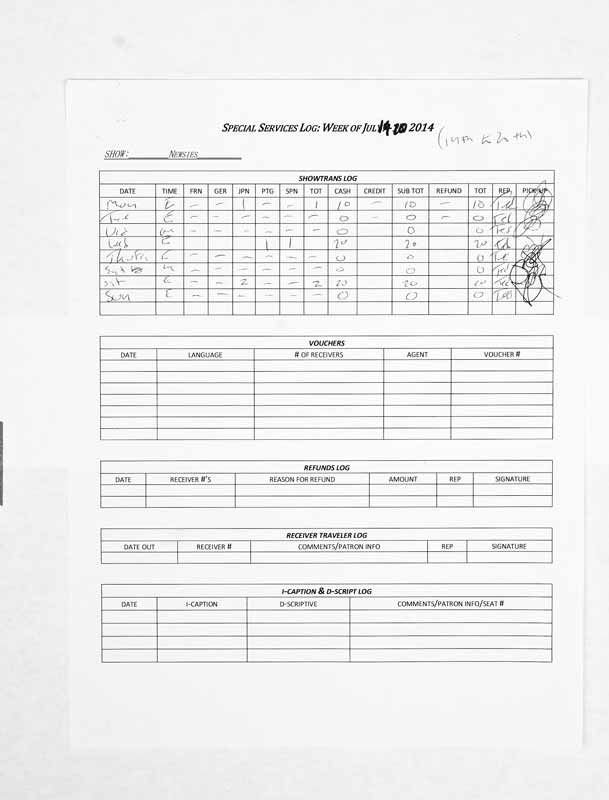 SPECIAL SERVICES LOG: WEEK OF JULY 14-20 2014
(14th to 20th)
SHOW: NEWSIES
SHOWTRANS LOG
DATE TIME FRN GER JPN PTG SPN TOT CASH CREDIT SUB TOT REFUND TOT REP. PICK UP
Mon E - - 1 - - 1 10 - 10 - 10 Ted
Tue E - - - - - - 0 - 0 - 0 Ted
Wed m - - - - - - 0 0 0 Ted
Wed E 1 1 20 20 20 Ted
Thurs E - - - - - - 0 0 0 Ted
Sat m - - - - - - 0 0 0 Ted
Sat E - - 2 - - 2 20 20 20 Ted
Sun E - - - - - - 0 0 0 Ted
VOUCHERS
DATE LANGUAGE # OF RECEIVERS AGENT VOUCHER #
REFUNDS LOG
DATE RECEIVER #'S REASON FOR REFUND AMOUNT REP SIGNATURE
RECEIVER TRAVELER LOG
DATE OUT RECEIVER # COMMENTS/PATRON INFO REP SIGNATURE
I-CAPTION & D-SCRIPT LOG
DATE I-CAPTION D-SCRIPTIVE COMMENTS/PATRON INFO/SEAT #